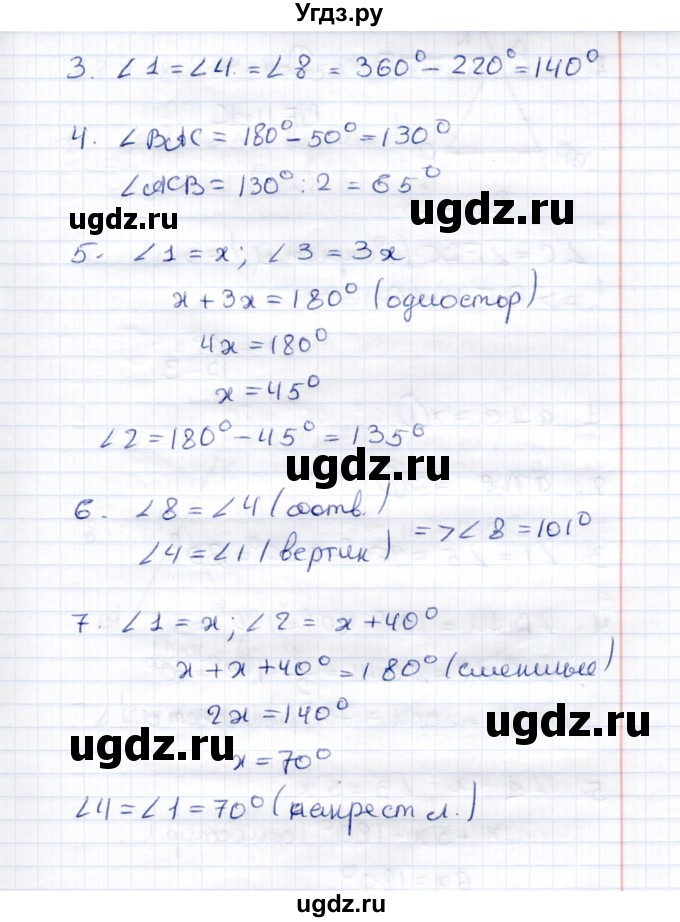 Угдз.ру
3. ∠1 = ∠4 = ∠8 = 360° - 220° = 140°
4. ∠BAC = 180° - 50° = 130°
∠ACB = 130° : 2 = 65°
ugdz.ru ugdz.ru
5. ∠1 = x; ∠3 = 3x
x + 3x = 180° (одностор)
ugdz.ru
4x = 180°
x = 45°
∠2 = 180° - 45° = 135°
ugdz.ru
6. ∠8 = ∠4 (соотв.)
∠4 = ∠1 (вертик) => ∠8 = 101°
7. ∠1 = x; ∠2 = x + 40°
x + x + 40° = 180° (смежные)
2x = 140°
ugdz.ru ugdz.ru
x = 70°
∠4 = ∠1 = 70° (накрест л.)
ugdz.ru